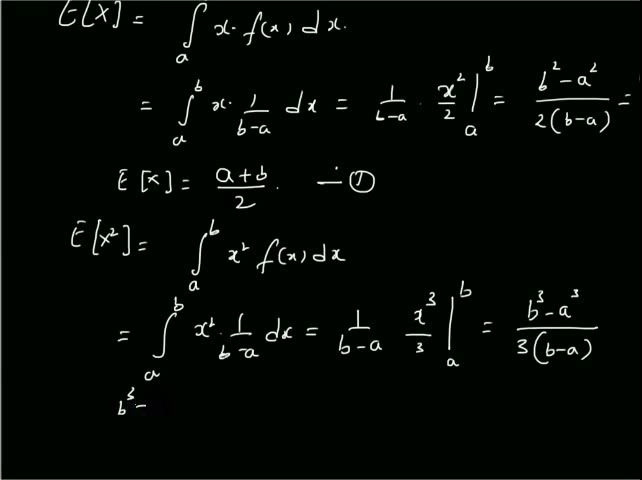 E[X] = ∫_a x. f(x) dx.
= ∫_a^b x. 1/(b-a) dx = 1/(b-a) . x²/2 |_a^b = (b²-a²)/(2(b-a)) =
E[x] = (a+b)/2. — ①
E[x²] = ∫_a^b x² f(x) dx
= ∫_a^b x². 1/(b-a) dx = 1/(b-a) x³/3 |_a^b = (b³-a³)/(3(b-a))
b³ -